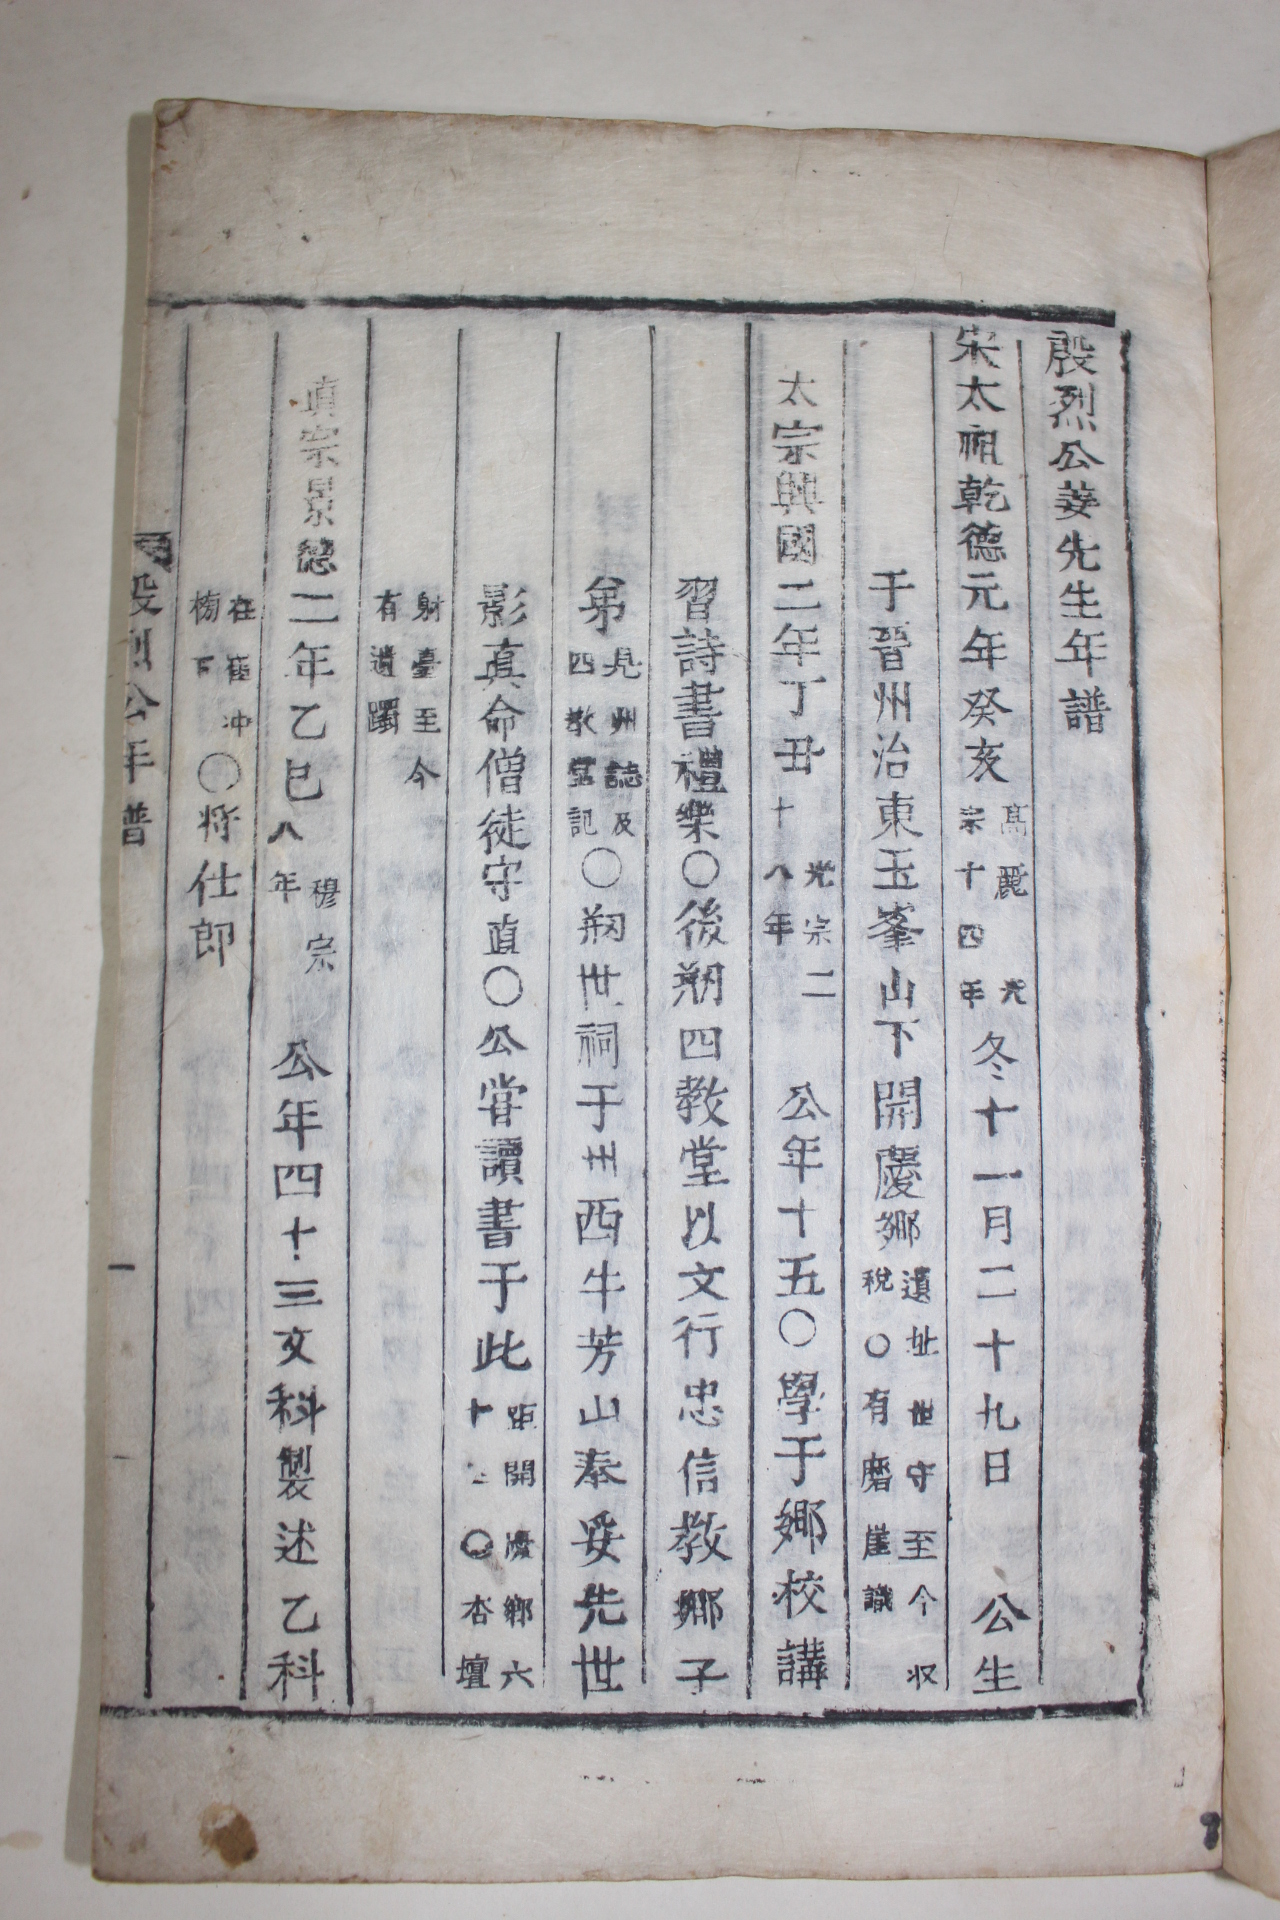 殷烈公姜先生年譜
宋太祖乾德元年癸亥高麗光宗十四年冬十一月二十九日公生
于晉州治東玉峯山下開慶鄉遺址世守至今収稅○有磨崖識
太宗興國二年丁丑光宗二十八年公年十五○學于鄉校講
習詩書禮樂○後刱四教堂以文行忠信教鄉子
弟見州誌及四教堂記○刱世祠于州西牛芳山奉妥先世
影真命僧徒守直○公甞讀書于此距開慶鄉六十里○杏壇
射臺至今有遺躅
真宗景德二年乙巳穆宗八年公年四十三文科製述乙科
在崔冲榜下○將仕郎
殷烈公年譜
一